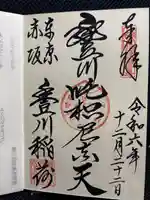 奉拝
令和六年
十二月二十二日
豊川吒枳尼真天
東京
赤坂
豊川稲荷